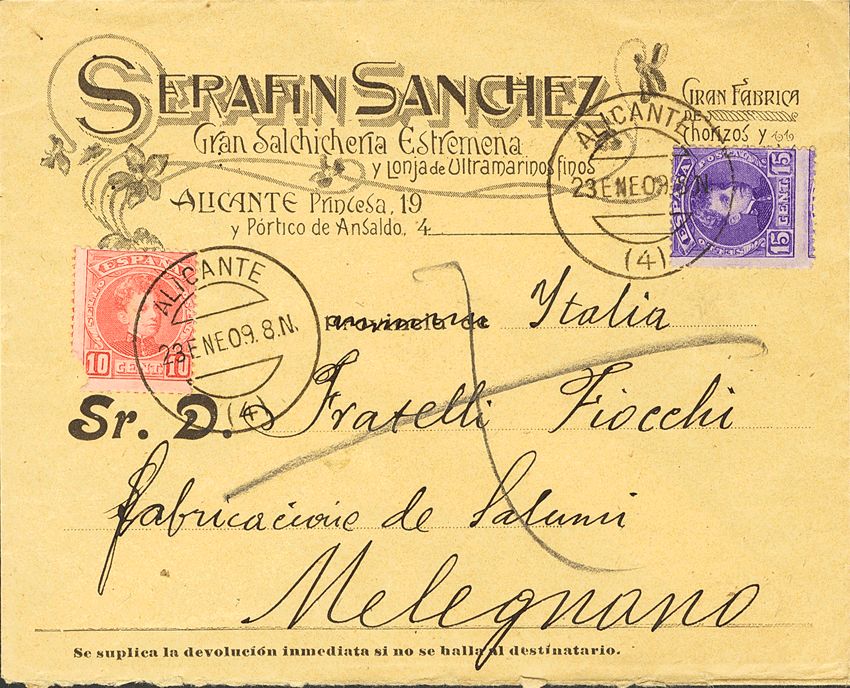 SERAFIN SANCHEZ
GRAN FABRICA
DE
Chorizos y
Gran Salchicheria Estremeña
y Lonja de Ultramarinos finos
ALICANTE Princesa, 19
y Pórtico de Ansaldo, 4
ALICANTE
23 ENE.09. 8 N.
(4)
ESPAÑA
15 CENT 15
ESPAÑA
10 CENT 10
ALICANTE
23 ENE.09. 8.N.
(4)
provincia de Italia
Sr. D. Fratelli Fiocchi
Fabricaccione de Salumi
Melegnano
Se suplica la devolución inmediata si no se halla al destinatario.